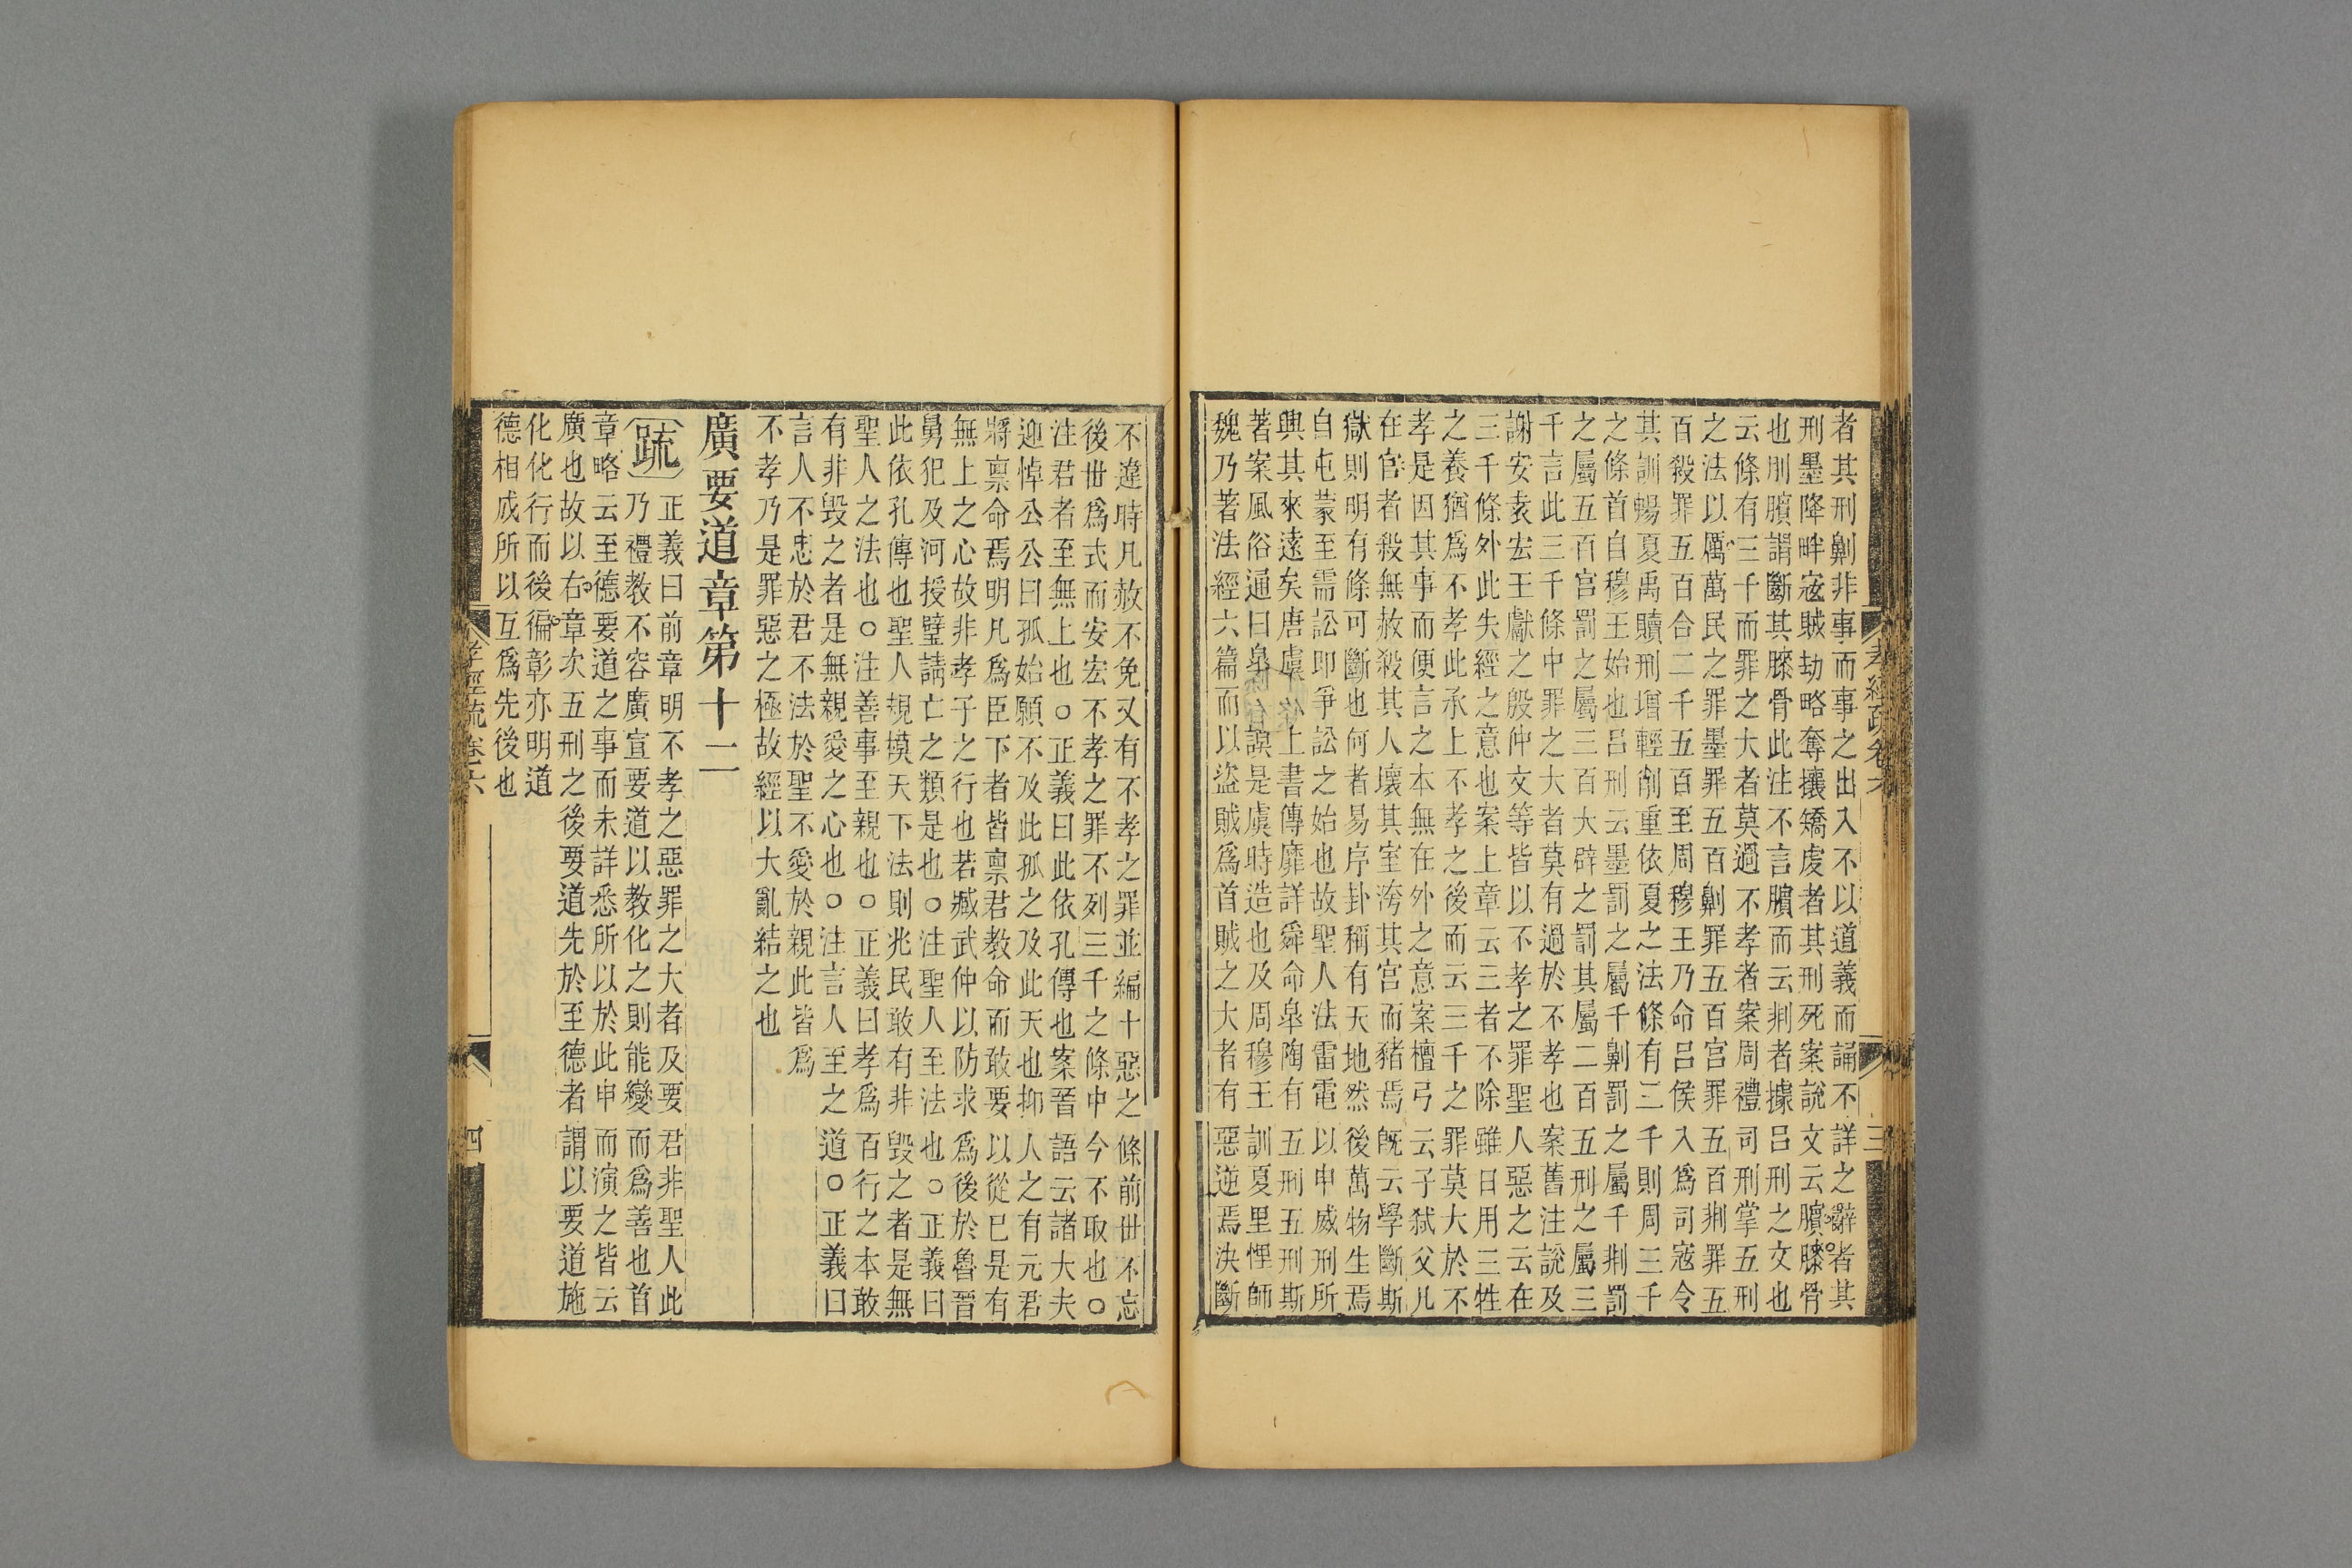 者其刑劓非事而事之出入不以道義而誦不詳之辭者其
刑墨降畔寇賊劫略奪攘矯虔者其刑死案說文云臏膝骨
也刖臏謂斷其膝骨此注不言臏而云剕者據呂刑之文也
云條有三千而罪之大者莫過不孝者案周禮司刑掌五刑
之法以厲萬民之罪墨罪五百劓罪五百宮罪五百剕罪五
百殺罪五百合二千五百至周穆王乃命呂侯入爲司寇令
其訓暢夏禹贖刑增輕削重依夏之法條有三千則周三千
之條首自穆王始也呂刑云墨罰之屬千劓罰之屬千剕罰
之屬五百宮罰之屬三百大辟之罰其屬二百五刑之屬三
千言此三千條中罪之大者莫有過於不孝也案舊注說及
謝安袁宏王獻之殷仲文等皆以不孝之罪聖人惡之云在
三千條外此失經之意也案上章云三者不除雖日用三牲
之養猶爲不孝此承上不孝之後而云三千之罪莫大於不
孝是因其事而便言之本無在外之意案檀弓云子弑父凡
在官者殺無赦殺其人壞其室洿其宮而豬焉旣云學斷斯
獄則明有條可斷也何者易序卦稱有天地然後萬物生焉
自屯蒙至需訟即爭訟之始也故聖人法雷電以申威刑所
興其來遠矣唐虞以上書傳靡詳舜命臯陶有五刑五刑斯
著案風俗通曰臯陶謨是虞時造也及周穆王訓夏里悝師
魏乃著法經六篇而以盜賊爲首賊之大者有惡逆焉決斷
孝經疏卷六
三
不違時凡赦不免又有不孝之罪並編十惡之條前世不忘
後世爲式而安宏不孝之罪不列三千之條中今不取也○
注君者至無上也○正義曰此依孔傳也案晉語云諸大夫
迎悼公公曰孤始願不及此孤之及此天也抑人之有元君
將禀命焉明凡爲臣下者皆禀君教命而敢要以從已是有
無上之心故非孝子之行也若臧武仲以防求爲後於魯晉
舅犯及河授璧請亡之類是也○注聖人至法也○正義曰
此依孔傳也聖人規模天下法則兆民敢有非毀之者是無
聖人之法也○注善事至親也○正義曰孝爲百行之本敢
有非毀之者是無親愛之心也○注言人至之道○正義曰
言人不忠於君不法於聖不愛於親此皆爲
不孝乃是罪惡之極故經以大亂結之也
廣要道章第十二
疏 正義曰前章明不孝之惡罪之大者及要君非聖人此
乃禮教不容廣宣要道以教化之則能變而爲善也首
章略云至德要道之事而未詳悉所以於此申而演之皆云
廣也故以右章次五刑之後要道先於至德者謂以要道施
化化行而後徧彰亦明道
德相成所以互爲先後也
孝經疏卷六
四